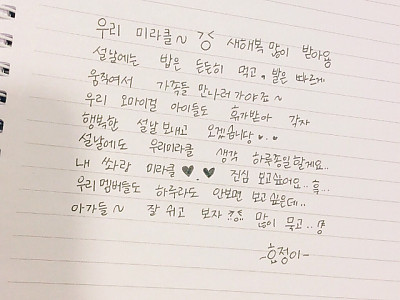 우리 미라클~ 깅 새해복 많이 받아용
설날에는 밥은 든든히 먹고, 발은 빠르게
움직여서 가족들 만나러 가야죠~
우리 오마이걸 아이들도 휴가받아 각자
행복한 설날 보내고 오겠습니당♥.♥
설날에도 우리미라클 생각 하루종일할게요..
내 쏴랑 미라클 ♥.♥ 진심 보고싶어요..흑...
우리멤버들도 하루라도 안보면 보고싶은데..
아가들~ 잘 쉬고 보자 많이 묵고..!
-효정이-